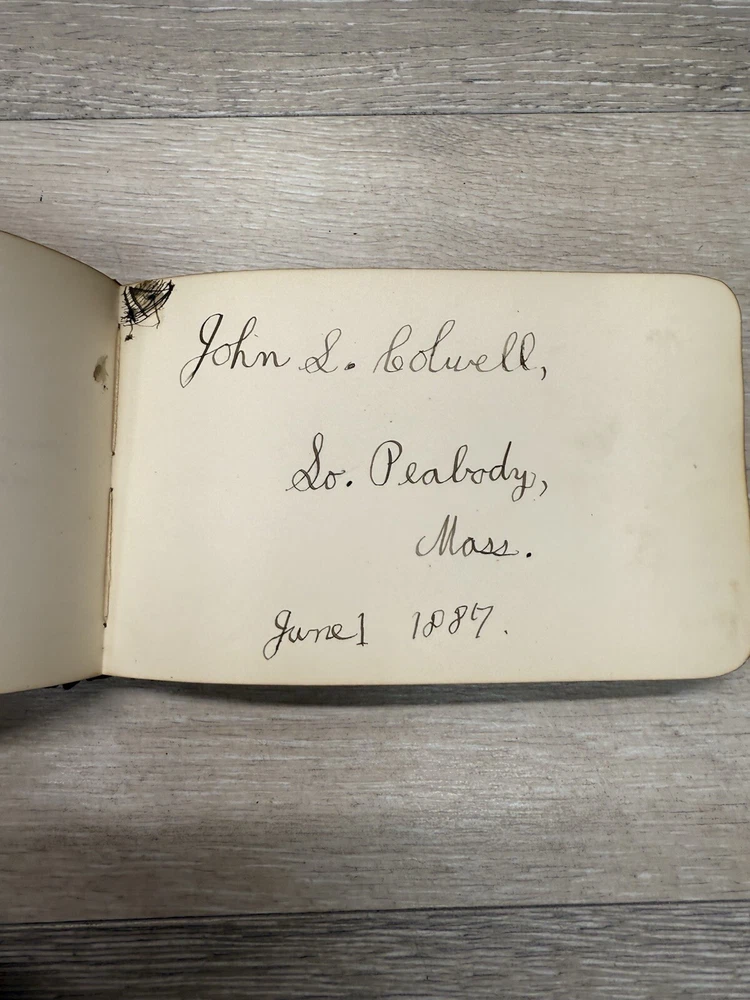 John S. Colwell,
So. Peabody,
Mass.
June 1 1887.